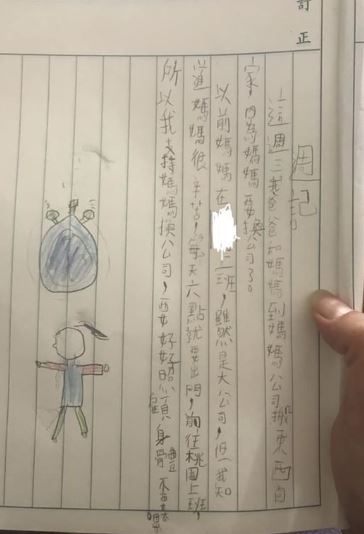 訂正
週記
這週三我爸爸和媽媽到媽媽公司搬東西回
家，因為媽媽要換公司了。
以前媽媽在 上班，雖然是大公司，但我知
道媽媽很辛苦，每天六點就要出門，前往桃園上班，
所以我支持媽媽換公司，要好好照顧身體